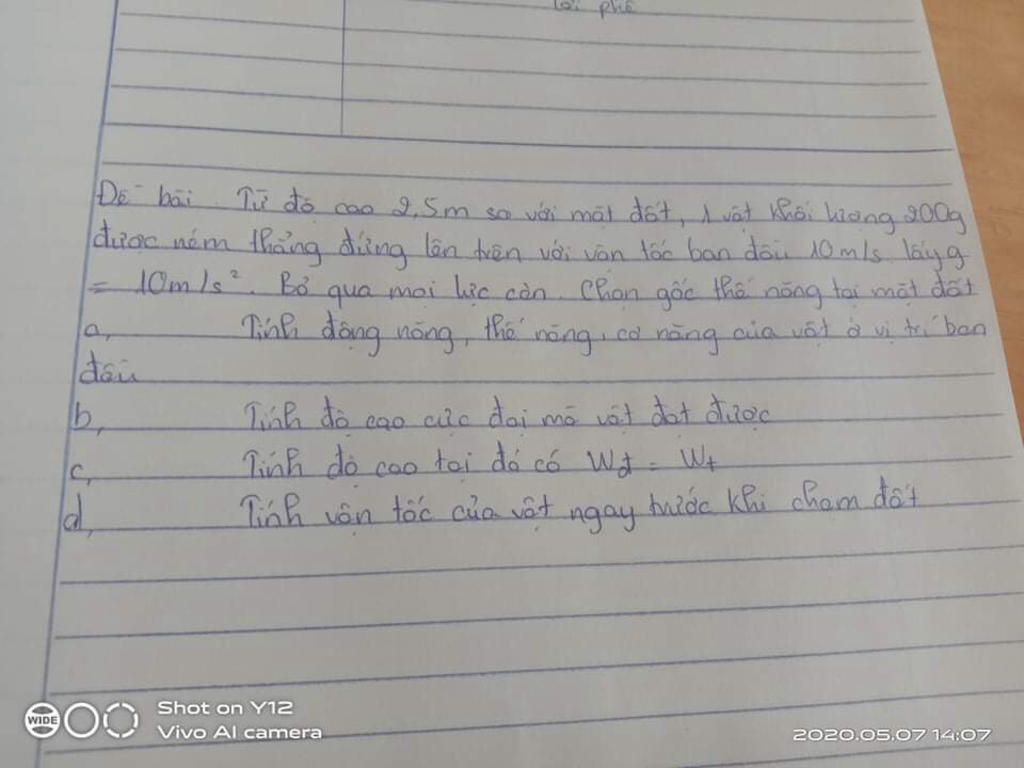 lời phê
Đề bài. Từ độ cao 2,5m so với mặt đất, 1 vật khối lượng 200g
được ném thẳng đứng lên trên với vận tốc ban đầu 10m/s lấy g
= 10m/s². Bỏ qua mọi lực cản. Chọn gốc thế năng tại mặt đất
a, Tính động năng, thế năng, cơ năng của vật ở vị trí ban
đầu
b, Tính độ cao cực đại mà vật đạt được
c, Tính độ cao tại đó có Wđ = Wt
d, Tính vận tốc của vật ngay trước khi chạm đất
WIDE
Shot on Y12
Vivo AI camera
2020.05.07 14:07